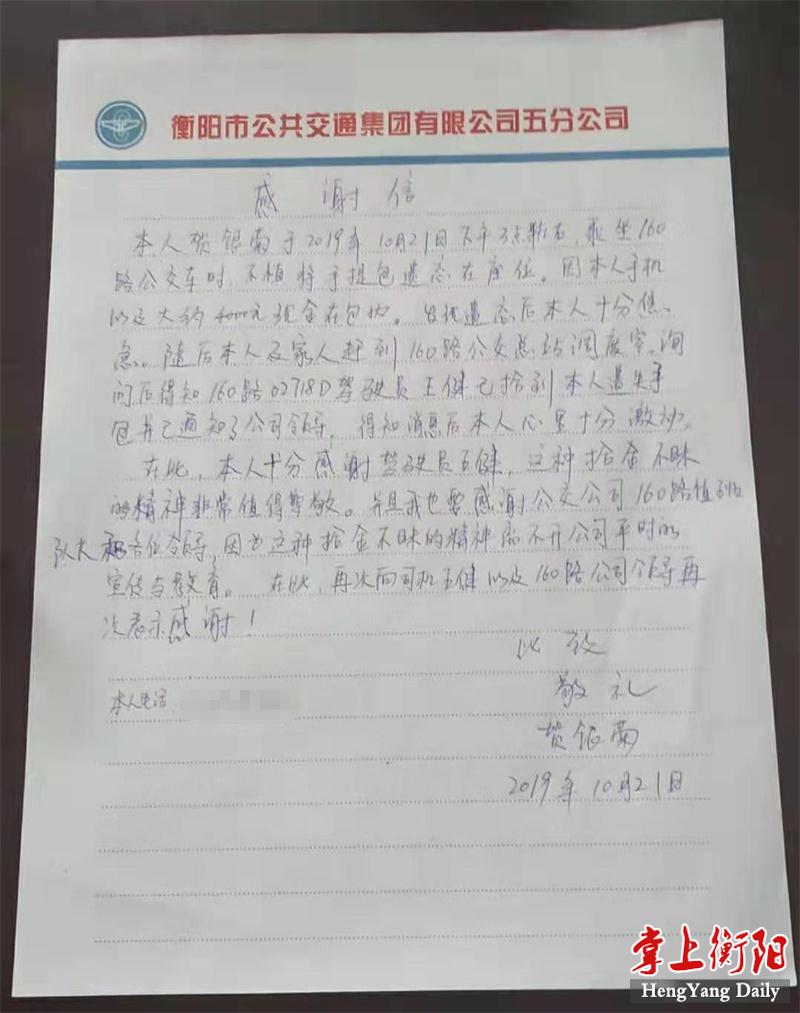 衡阳市公共交通集团有限公司五分公司
感谢信
本人贺银菊于2019年10月21日下午3点左右,乘坐160
路公交车时,不慎将手提包遗忘在座位。因本人手机
以及大约4000元现金在包内。发现遗忘后本人十分焦
急。随后本人及家人赶到160路公交总站调度室,询
问后得知160路02718D驾驶员王健已拾到本人遗失手
包并已通知了公司领导。得知消息后本人心里十分激动。
在此,本人十分感谢驾驶员王健,这种拾金不昧
的精神非常值得尊敬。并且我也要感谢公交公司160路值班
队长和各位领导,因为这种拾金不昧的精神离不开公司平时的
宣传与教育。在此,再次向司机王健以及160路公司领导再
次表示感谢!
此致
敬礼
本人电话
贺银菊
2019年10月21日
掌上衡阳
HengYang Daily